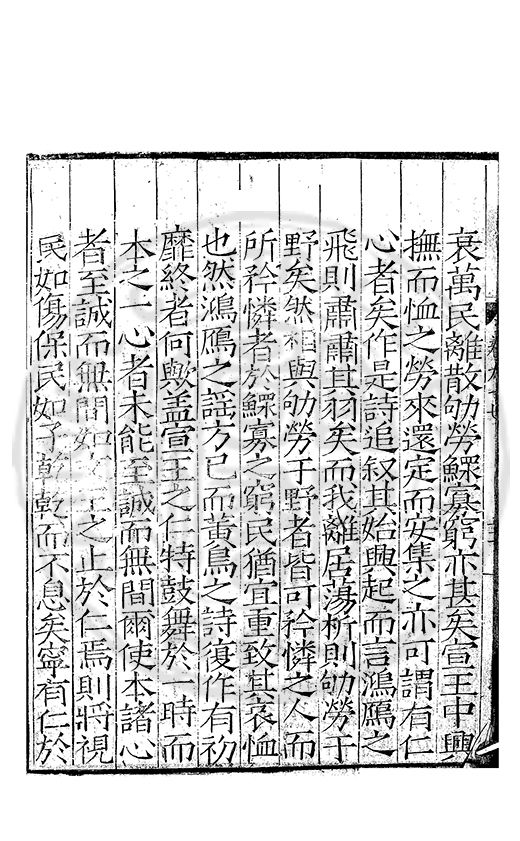 衰萬民離散劬勞鰥寡窮亦甚矣宣王中興
撫而恤之勞來還定而安集之亦可謂有仁
心者矣作是詩追叙其始興起而言鴻鴈之
飛則肅肅其羽矣而我離居蕩析則劬勞于
野矣然相與劬勞于野者皆可矜憐之人而
所矜憐者於鰥寡之窮民猶宜重致其哀恤
也然鴻鴈之謡方已而黄鳥之詩復作有初
靡終者何歟盖宣王之仁特鼓舞於一時而
本之一心者未能至誠而無間爾使本諸心
者至誠而無間如文王之止於仁焉則將視
民如傷保民如子乾乾而不息矣寧有仁於